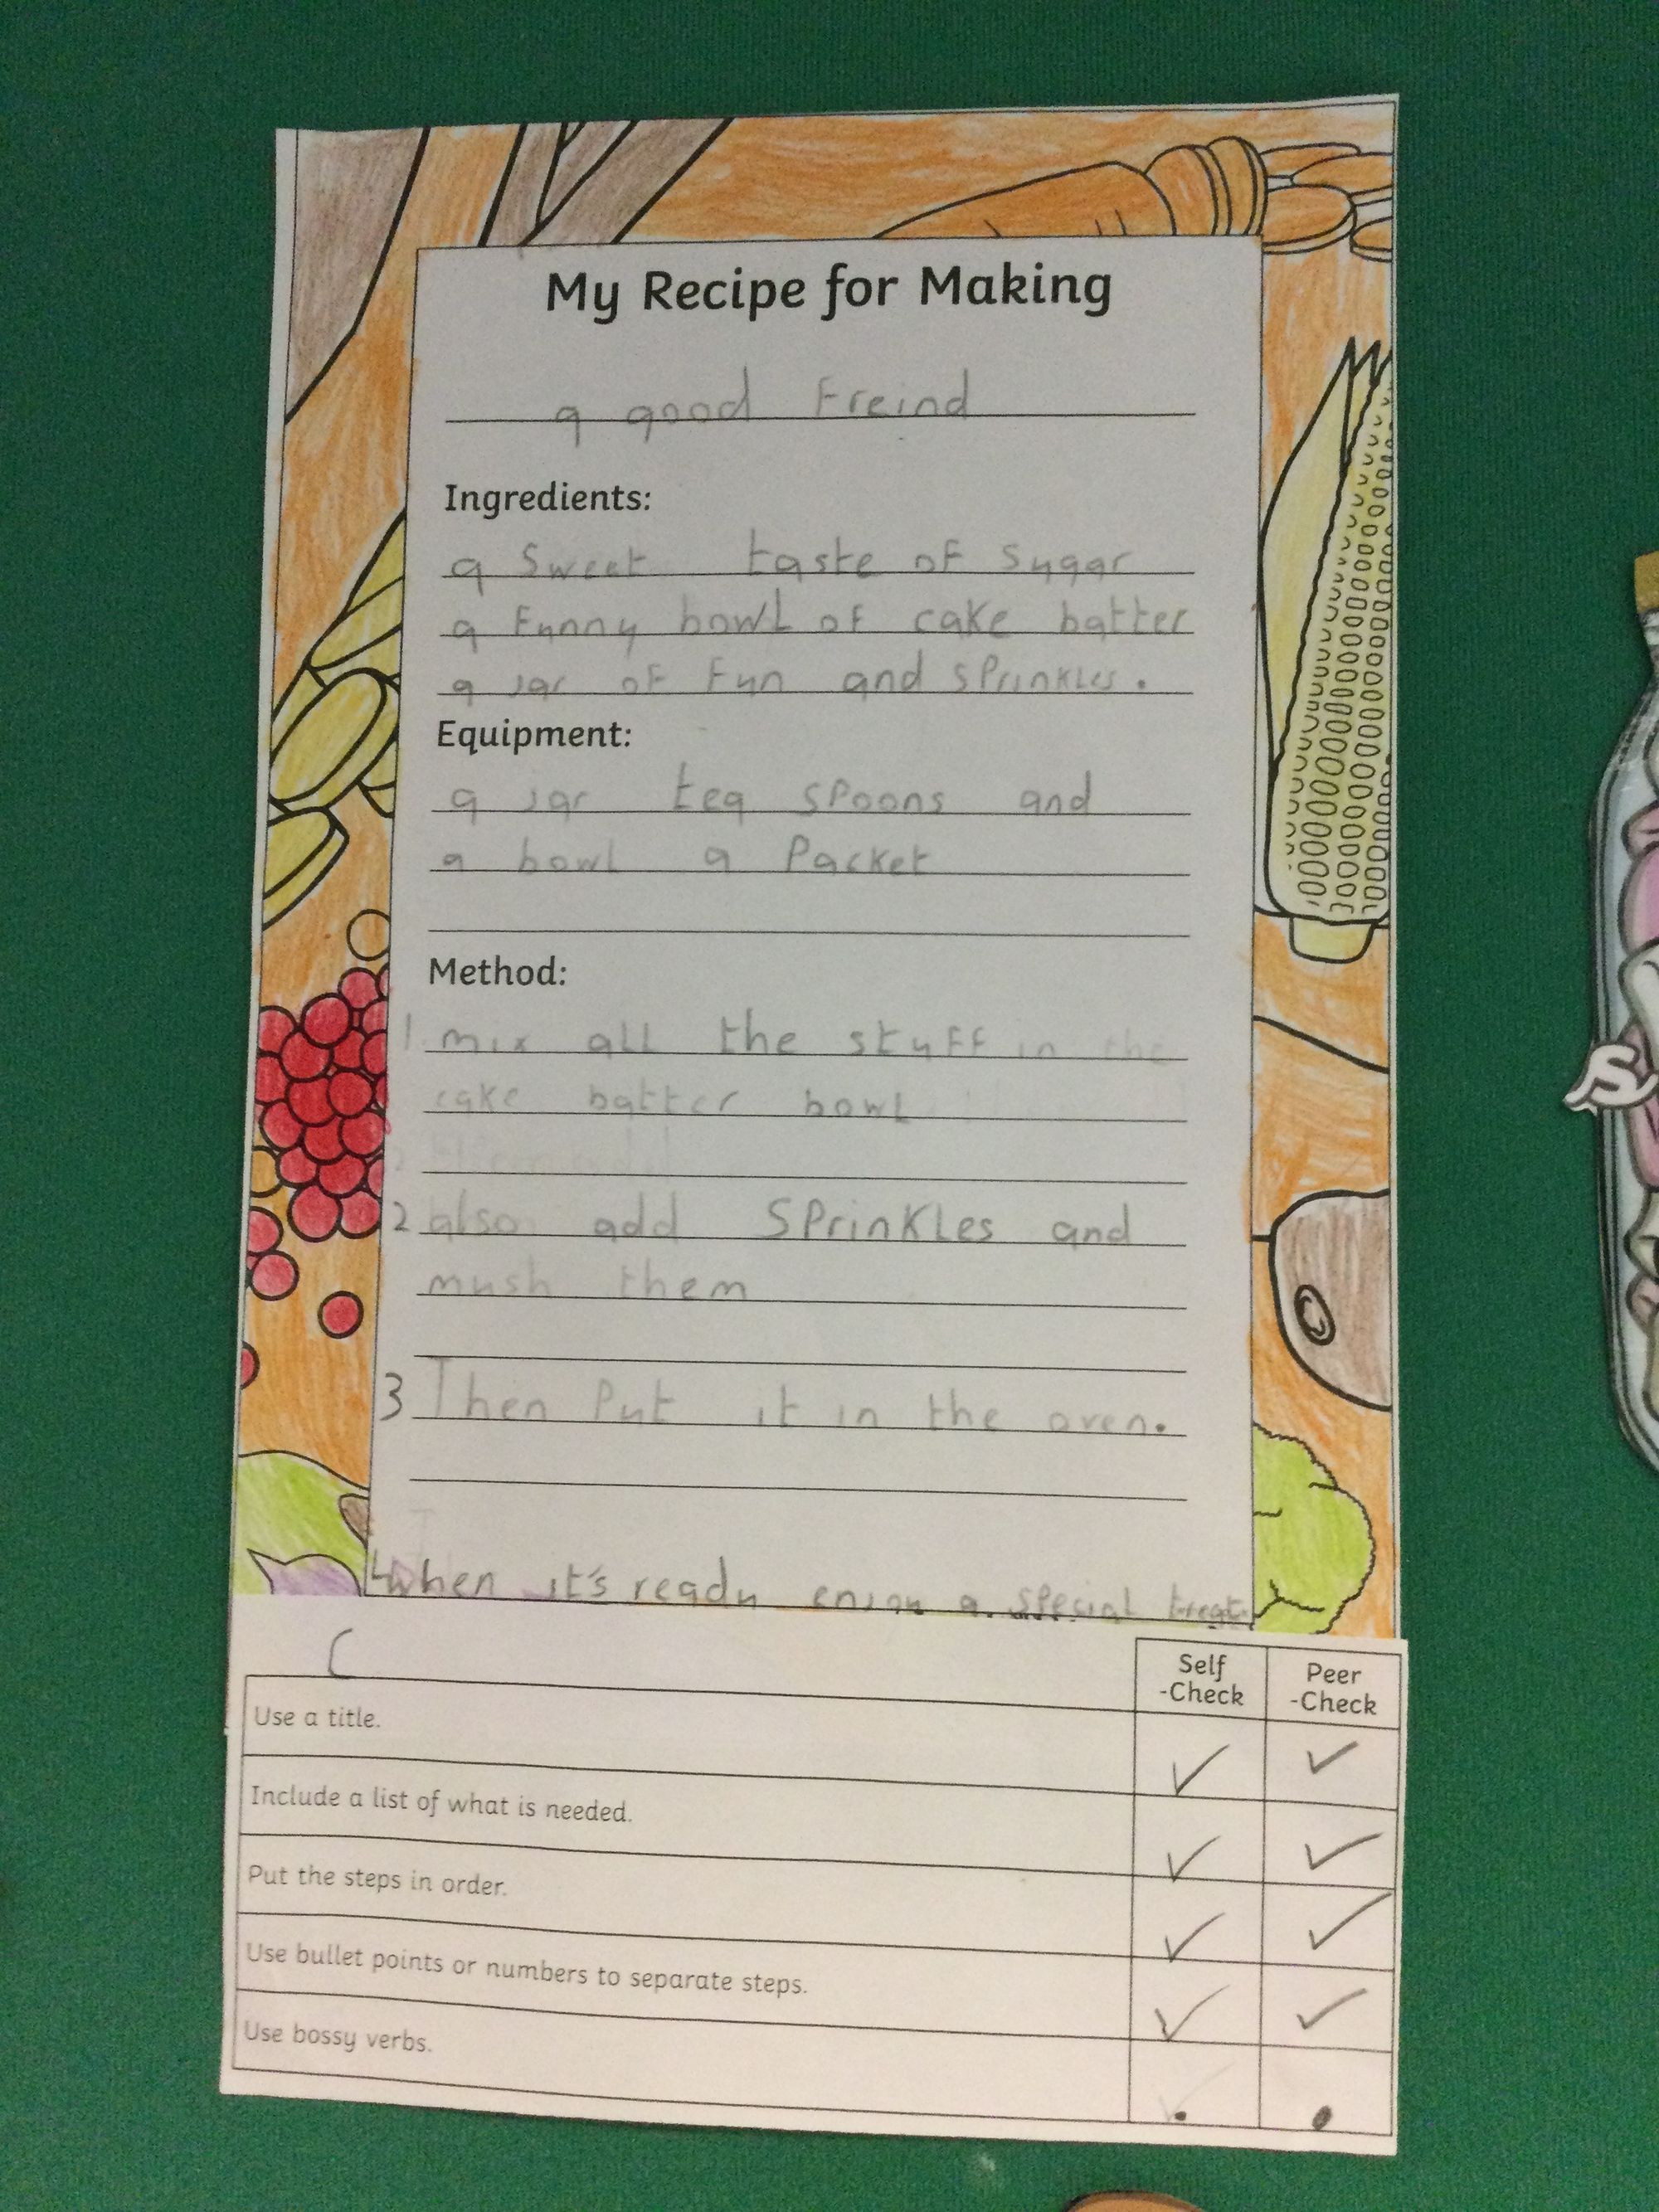 My Recipe for Making
a good Freind
Ingredients:
a Sweet taste of Sugar
a Funny bowl of cake batter
a jar of Fun and sprinkles.
Equipment:
a jar tea spoons and
a bowl a Packet
Method:
1. mix all the stuff in the
cake batter bowl
2 also add SPrinkles and
mush them
3 Then Put it in the oven.
4 when it's ready enjoy a spesial treat.
C
Self
-Check
Peer
-Check
Use a title.
Include a list of what is needed.
Put the steps in order.
Use bullet points or numbers to separate steps.
Use bossy verbs.